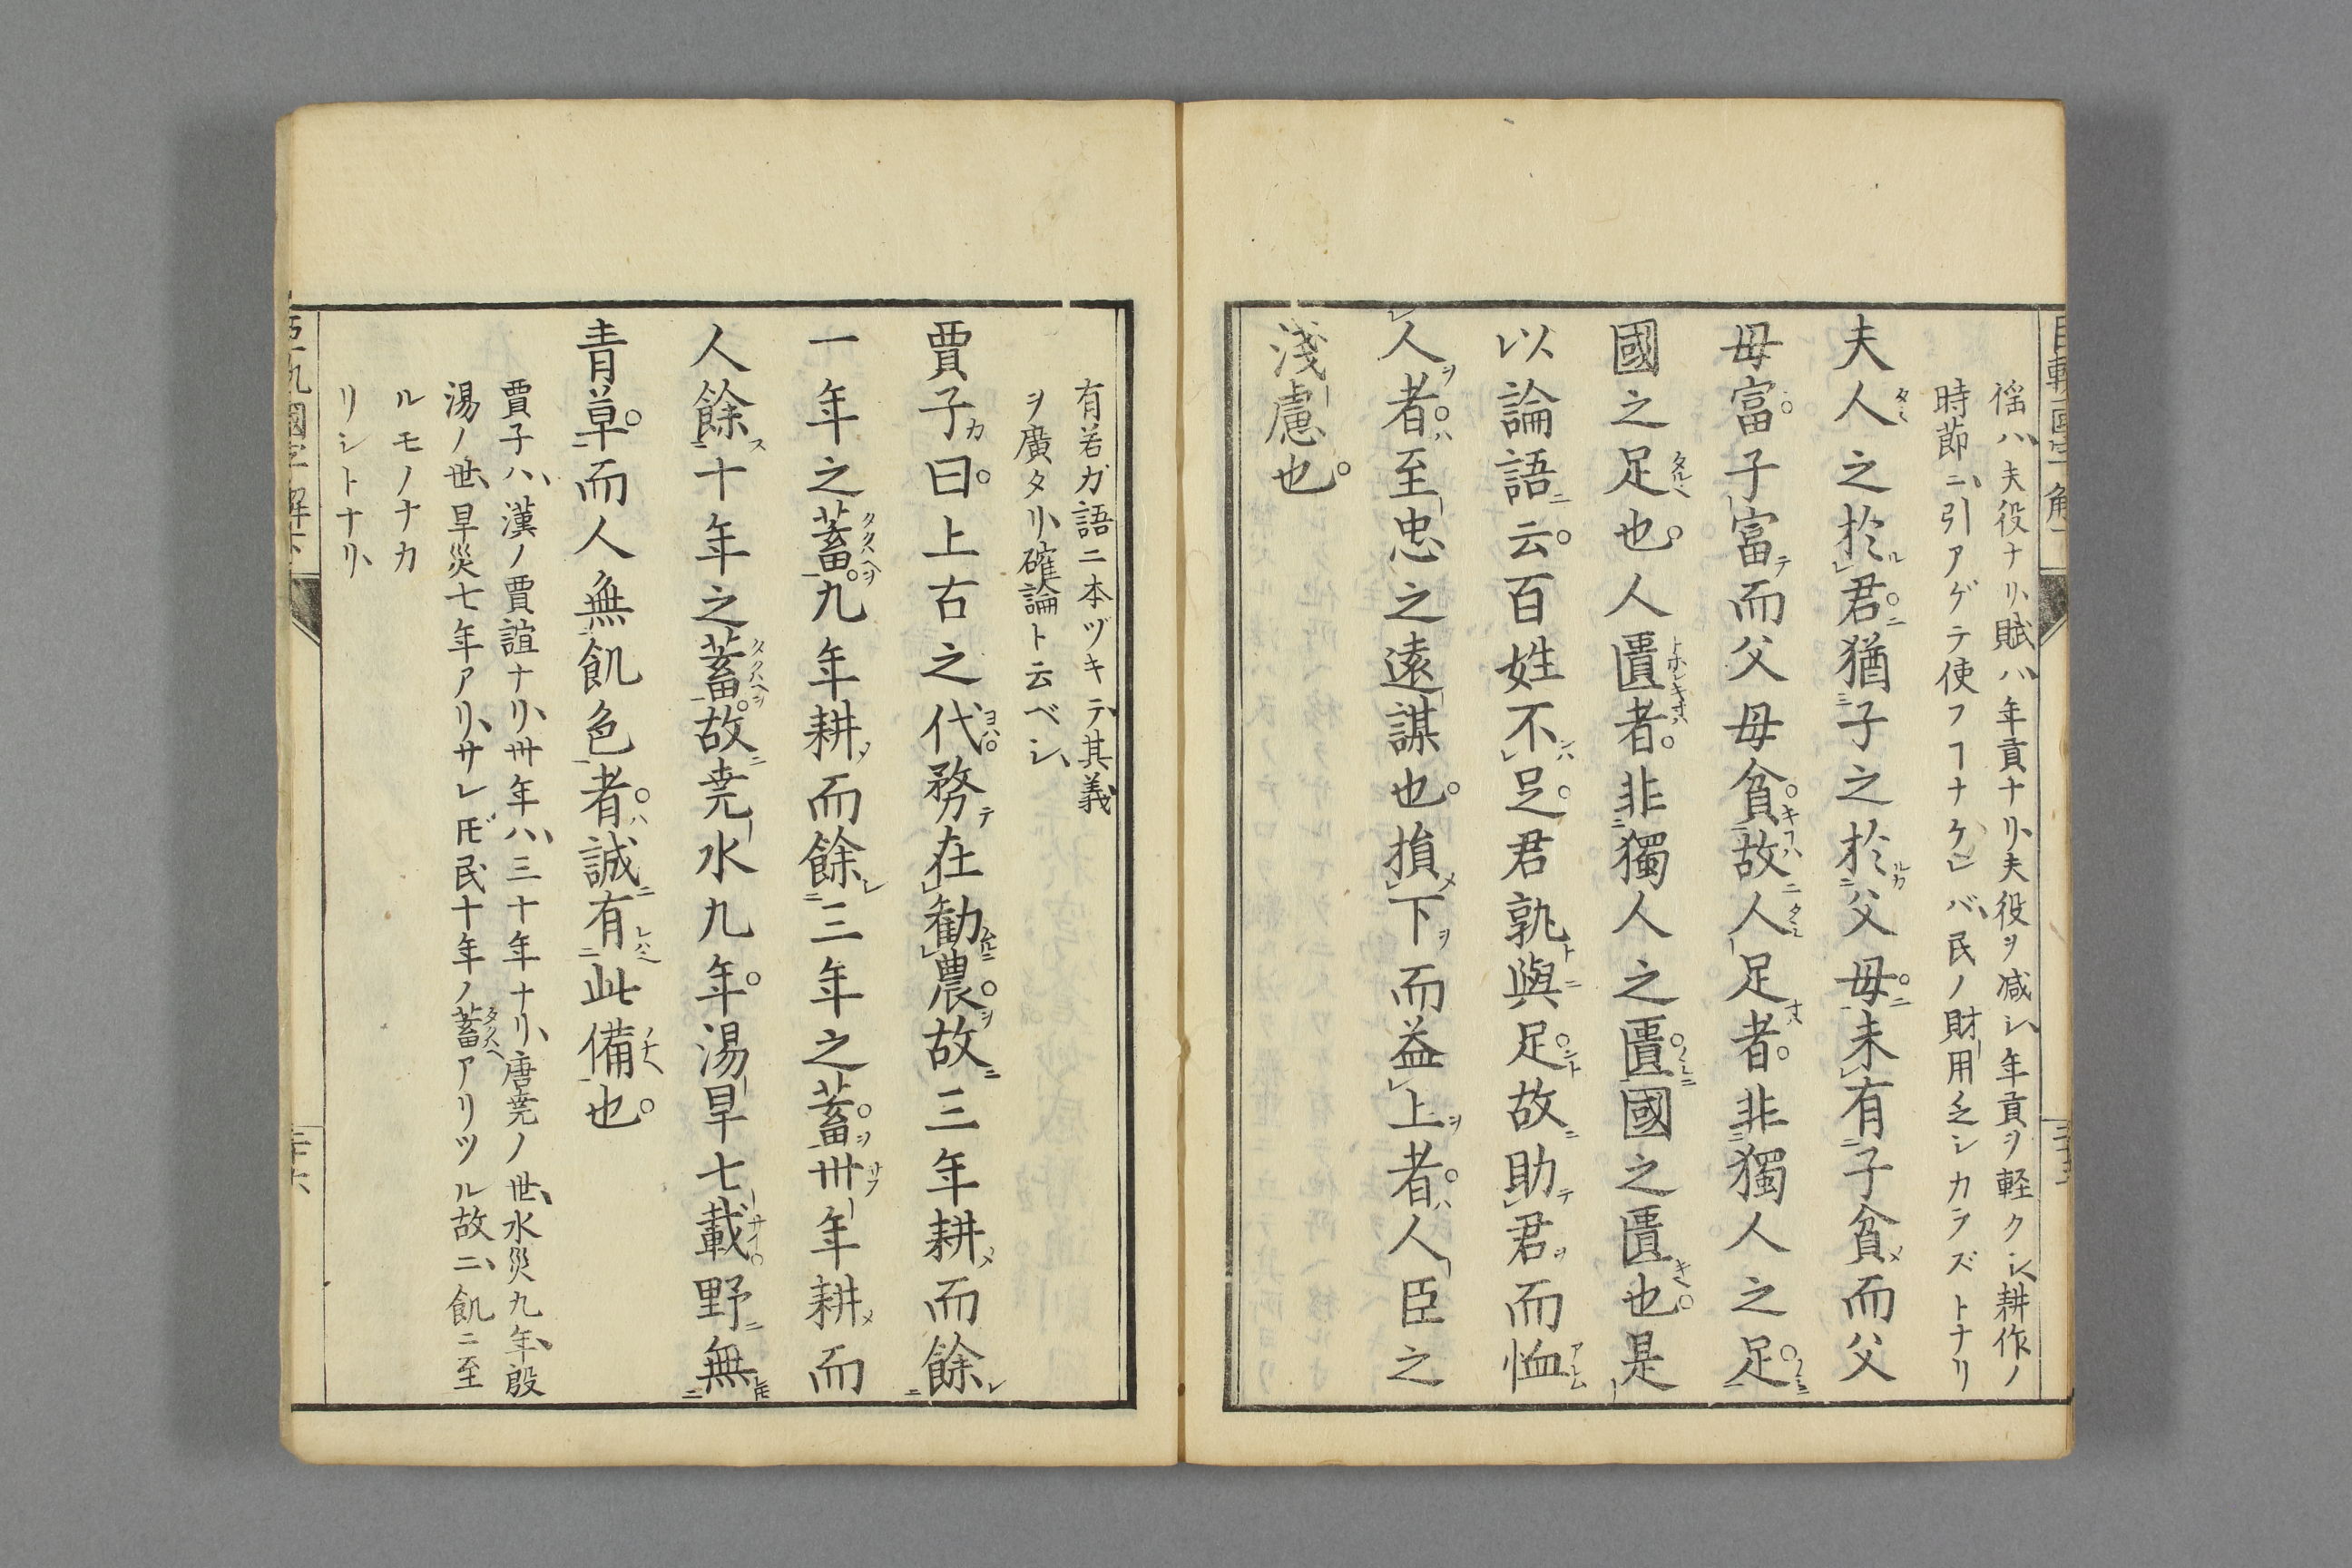 徭ハ、夫役ナリ、賦ハ、年貢ナリ、夫役ヲ减シ、年貢ヲ軽クシ、耕作ノ
時節ニ、引アゲテ使フヿナケレバ、民ノ財用乏シカラズトナリ
夫人之於君猶子之於父母未有子貧而父
母富子富而父母貧故人足者非獨人之足
國之足也人匱者非獨人之匱國之匱也是
以論語云百姓不足君孰與足故助君而恤
人者至忠之遠謀也損下而益上者人臣之
淺慮也
有若ガ語ニ本ヅキテ、其義
ヲ廣タリ、確論ト云ベシ、
賈子曰上古之代務在勸農故三年耕而餘
一年之蓄九年耕而餘三年之蓄卅年耕而
人餘十年之蓄故尭水九年湯旱七載野無
青草而人無飢色者誠有此備也
賈子ハ、漢ノ賈誼ナリ、卅年ハ、三十年ナリ、唐尭ノ世、水災九年、殷
湯ノ世、旱災七年アリ、サレ𪜈民十年ノ蓄アリツル故ニ、飢ニ至
ルモノナカ
リシトナリ、